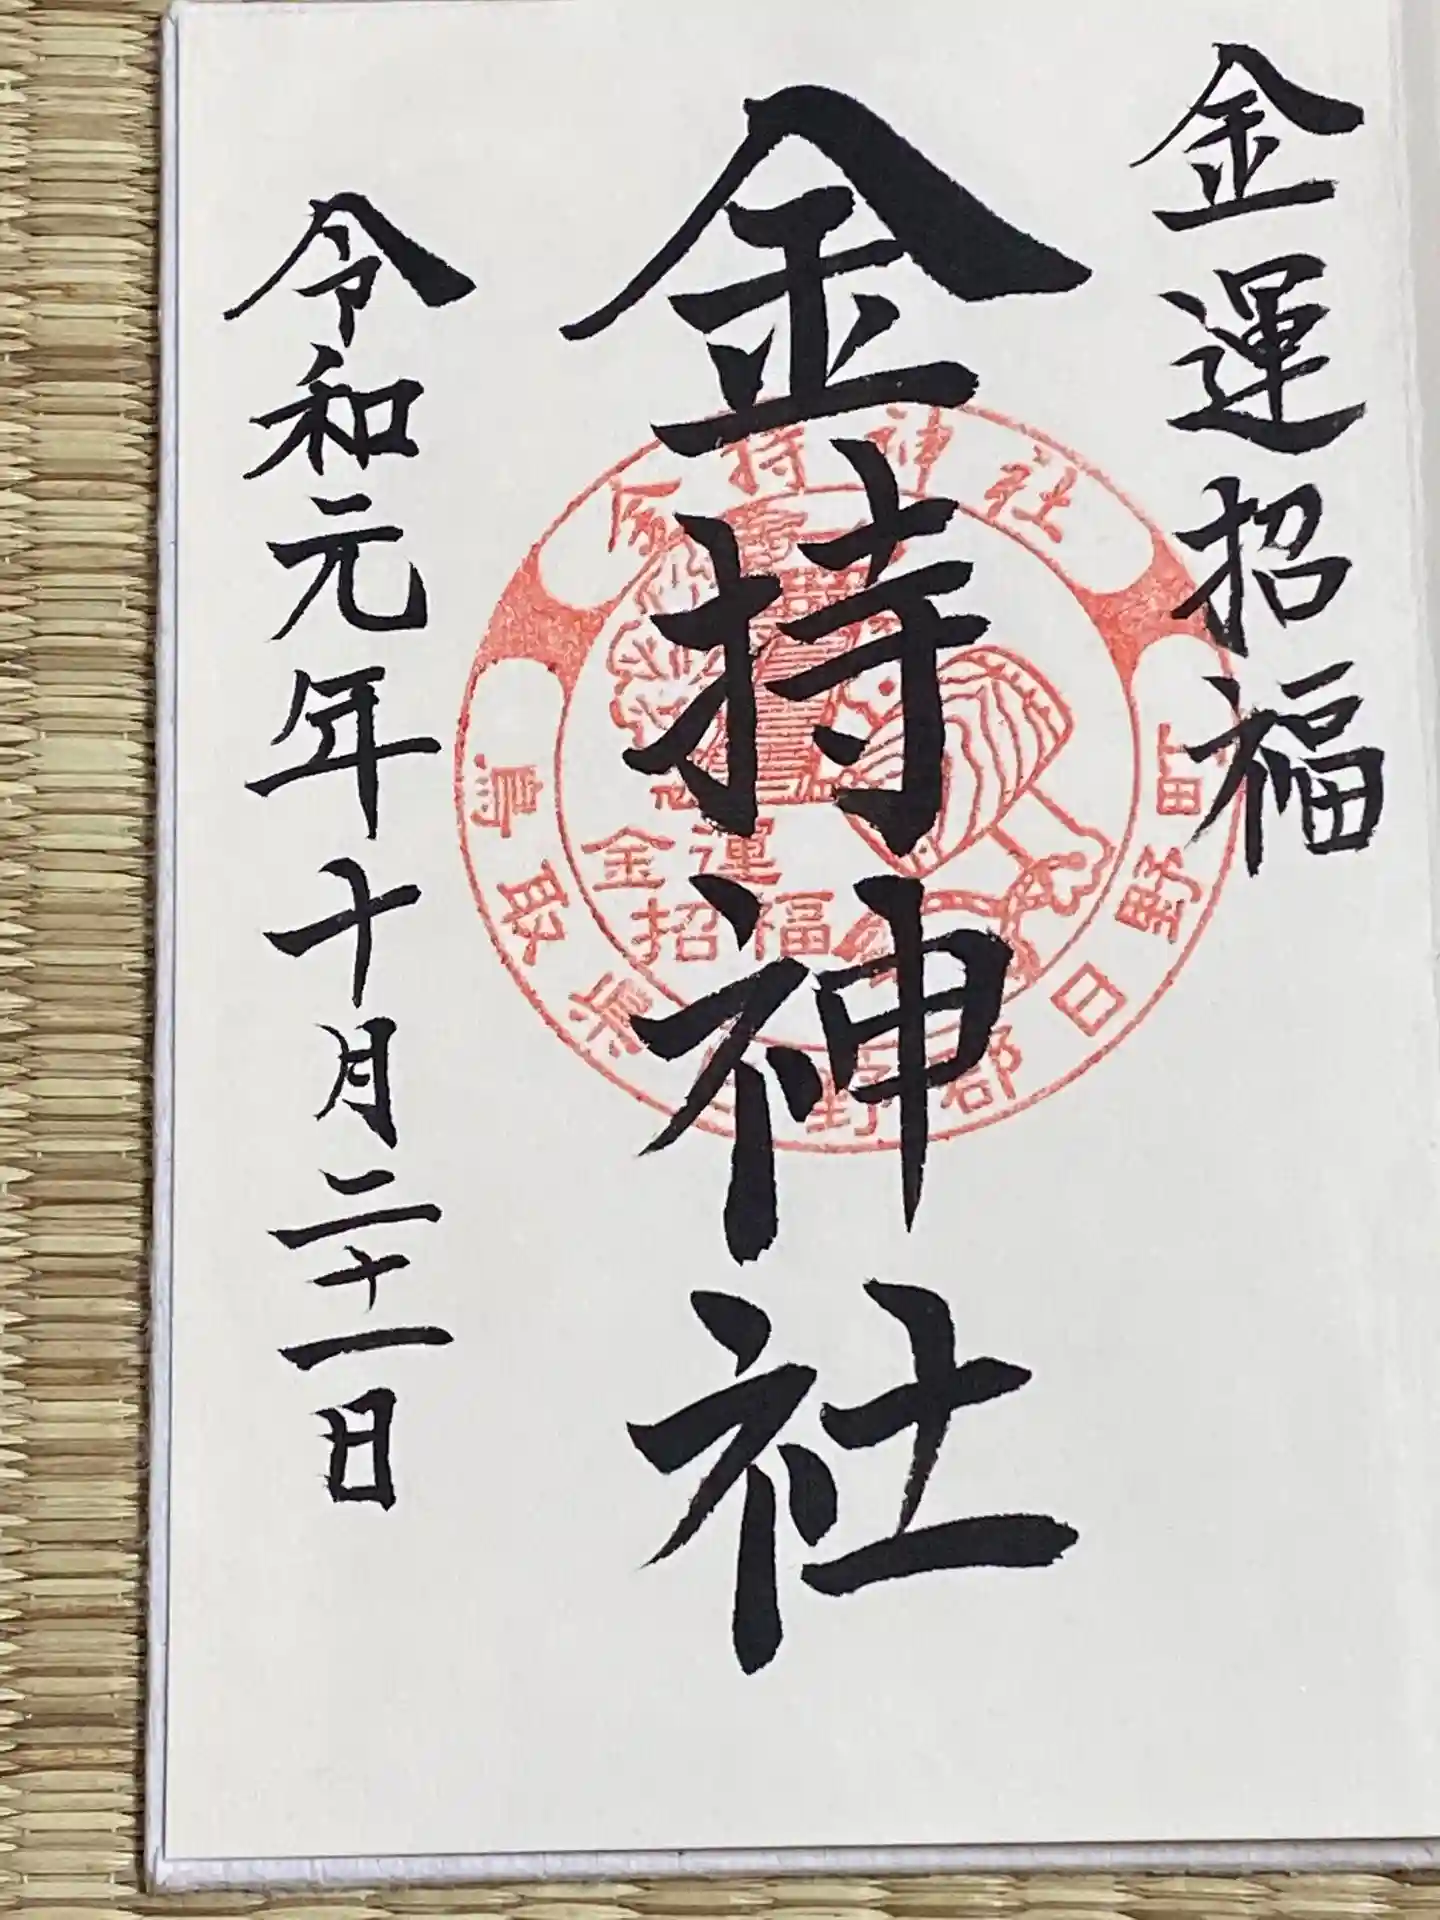 金運招福
金持神社
令和元年十月二十一日
金持神社
鳥取県日野郡日野町
金運
招福